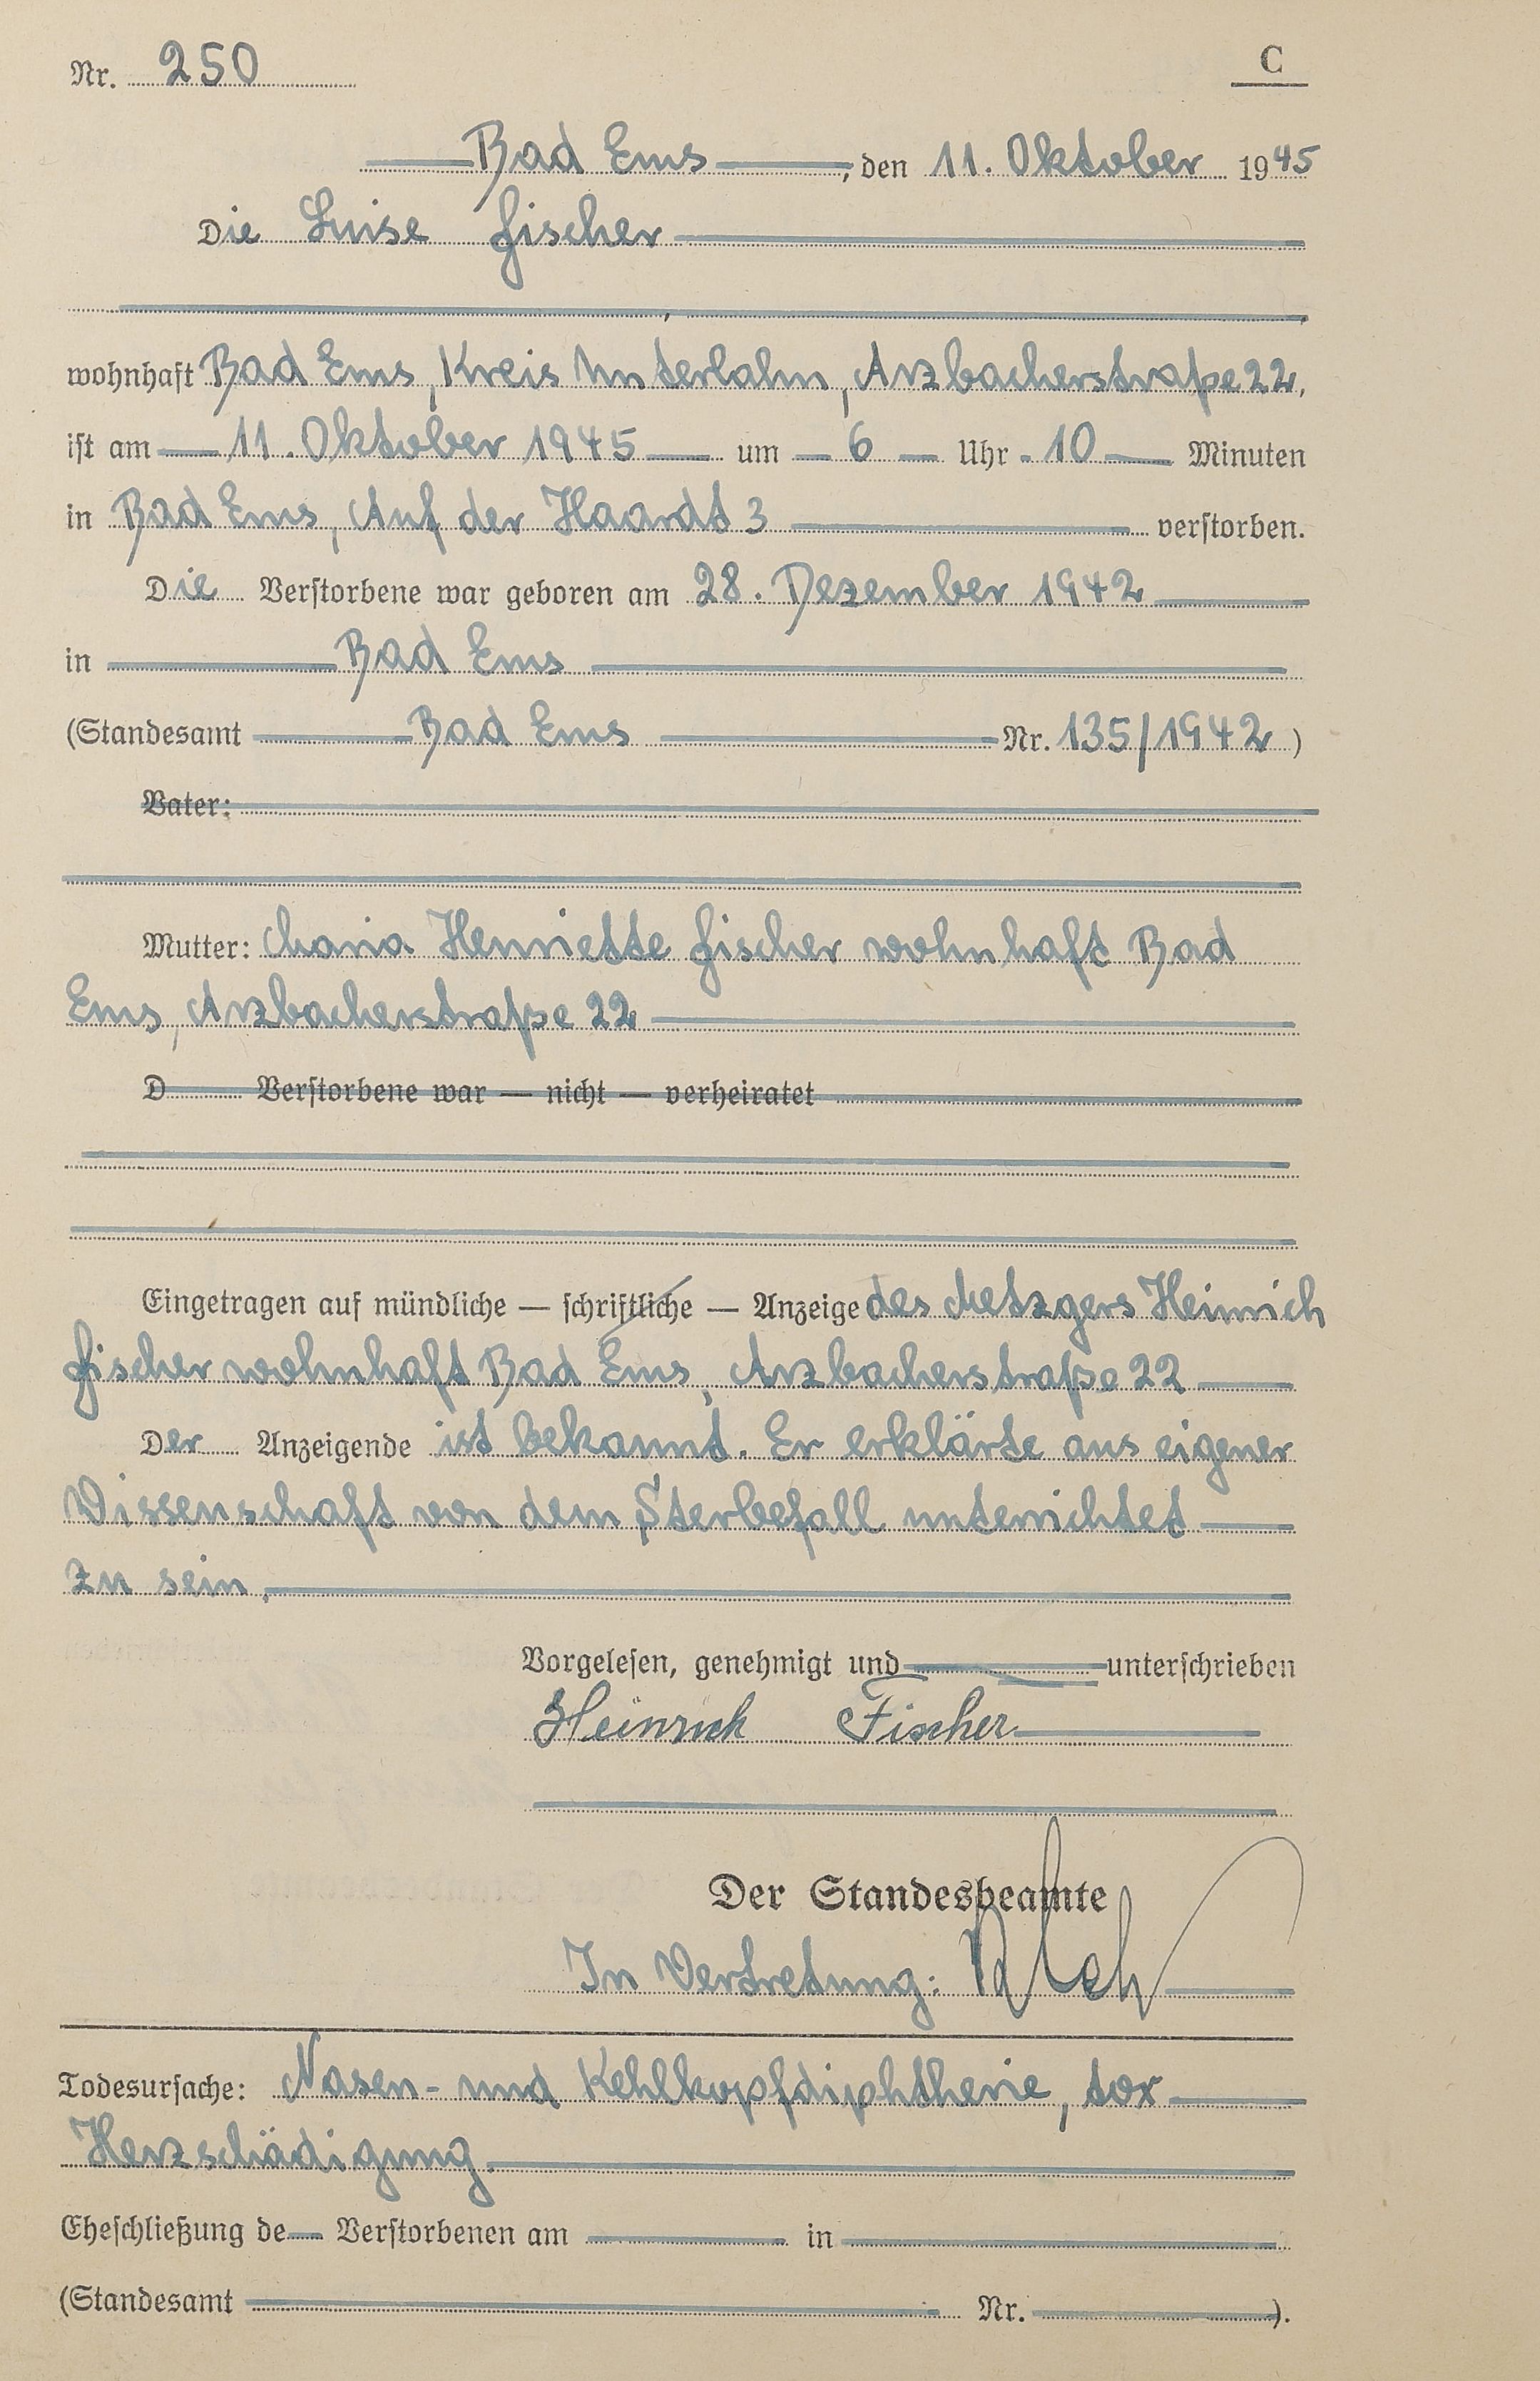 Nr. 250 C
Bad Ems, den 11. Oktober 1945
Die Luise Fischer
wohnhaft Bad Ems, Kreis Unterlahn, Arzbacherstraße 22,
ist am 11. Oktober 1945 um 6 Uhr 10 Minuten
in Bad Ems, Auf der Haardt 3 verstorben.
Die Verstorbene war geboren am 28. Dezember 1942
in Bad Ems
(Standesamt Bad Ems Nr. 135/1942)
Vater:
Mutter: Maria Henriette Fischer wohnhaft Bad
Ems, Arzbacherstraße 22
D Verstorbene war — nicht — verheiratet
Eingetragen auf mündliche — schriftliche — Anzeige des Metzgers Heinrich
Fischer wohnhaft Bad Ems, Arzbacherstraße 22
Der Anzeigende ist bekannt. Er erklärte aus eigener
Wissenschaft von dem Sterbefall unterrichtet
zu sein.
Vorgelesen, genehmigt und unterschrieben
Heinrich Fischer
Der Standesbeamte
In Vertretung:
Todesursache: Nasen- und Kehlkopfdiphtherie, tox
Herzschädigung
Eheschließung de Verstorbenen am in
(Standesamt Nr. ).